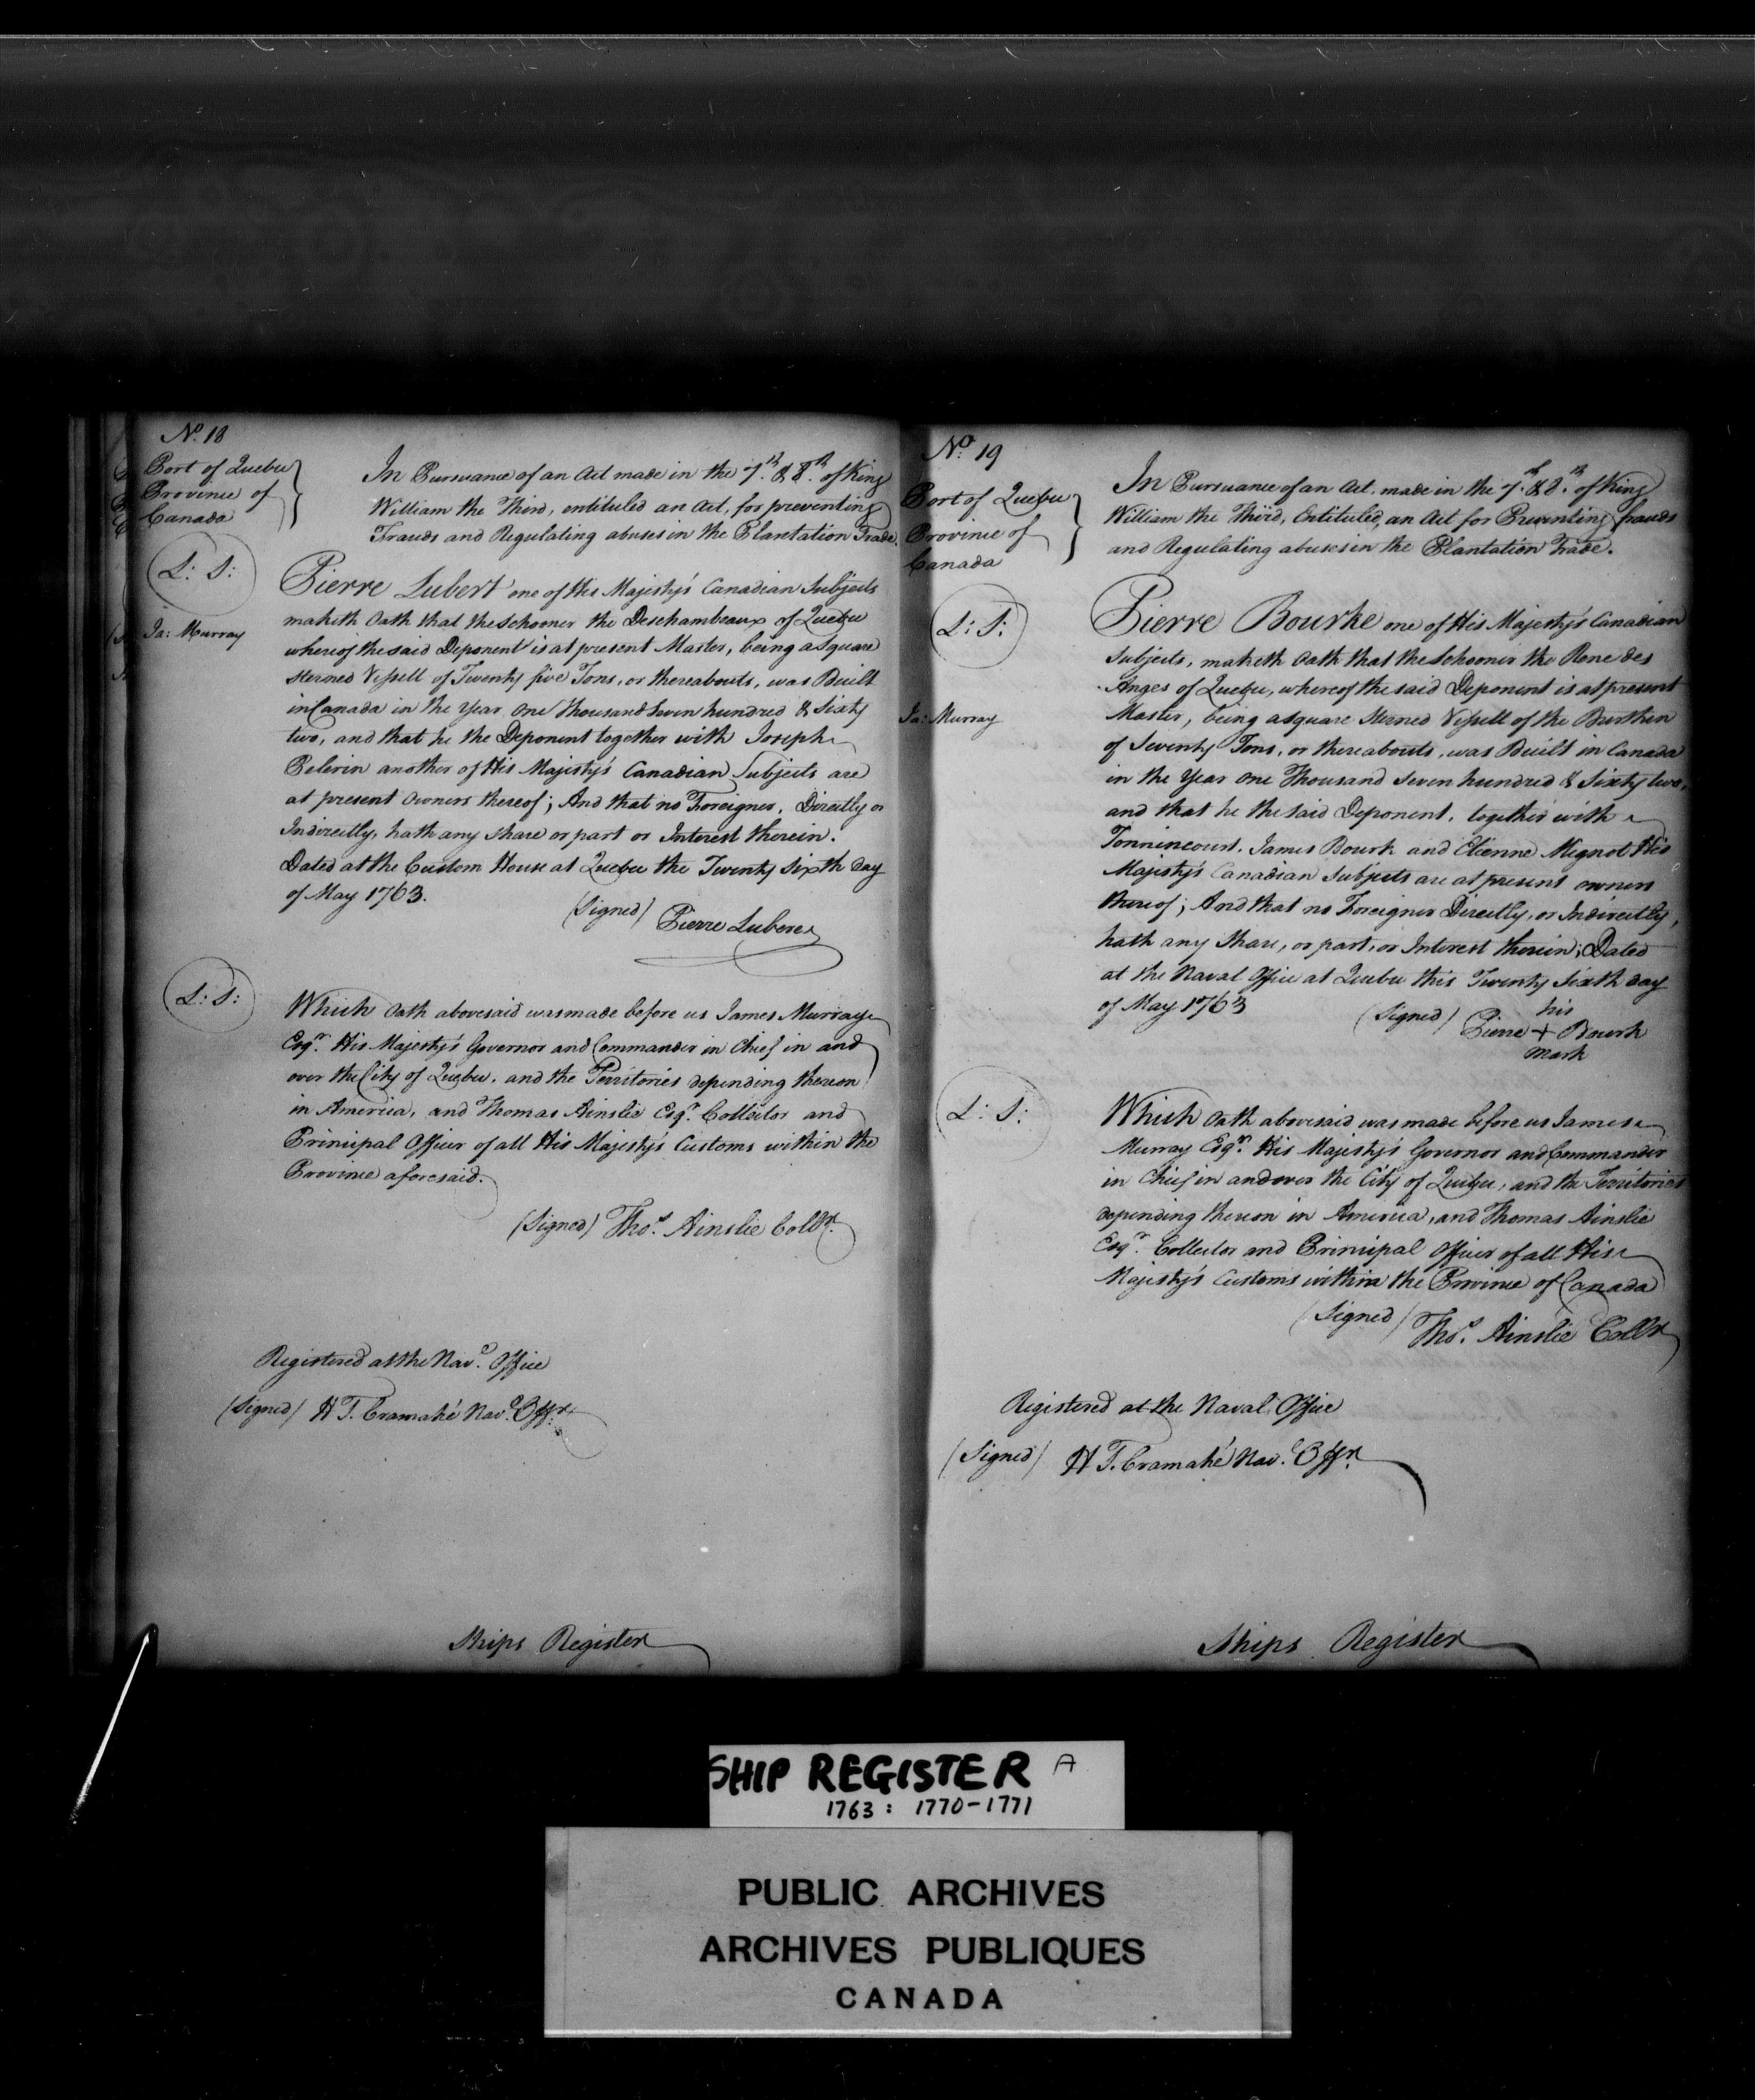 No. 18
Port of Quebec
Province of
Canada
In Pursuance of an Act made in the 7th & 8th of King
William the Third, entituled an Act, for preventing
Frauds and Regulating abuses in the Plantation Trade.
L: S:
Ja: Murray
Pierre Lubert one of His Majesty's Canadian Subjects
maketh Oath that the Schooner the Deschambeaux of Quebec
whereof the said Deponent is at present Master, being a Square
sterned Vessell of Twenty five Tons, or thereabouts, was Built
in Canada in the Year One Thousand Seven hundred & Sixty
two, and that he the Deponent together with Joseph
Pelerin another of His Majesty's Canadian Subjects are
at present Owners thereof; And that no Foreigner, Directly or
Indirectly, hath any Share or part or Interest therein.
Dated at the Custom House at Quebec the Twenty Sixth day
of May 1763.
(Signed) Pierre Lubere
L: S:
Which Oath abovesaid was made before us James Murray
Esqr. His Majesty's Governor and Commander in Chief in and
over the City of Quebec, and the Territories depending thereon
in America, and Thomas Ainslie Esqr. Collector and
Principal Officer of all His Majesty's Customs within the
Province aforesaid.
(Signed) Thos. Ainslie Collr.
Registered at the Navl. Office
(Signed) H T. Cramahé Navl. Offr.
Ships Register
No. 19
Port of Quebec
Province of
Canada
In Pursuance of an Act, made in the 7th & 8th of King
William the Third, Entituled, an Act for Preventing frauds
and Regulating abuses in the Plantation Trade.
L: S:
Ja: Murray
Pierre Bourke one of His Majesty's Canadian
Subjects, maketh Oath that the Schooner the Rene des
Anges of Quebec, whereof the said Deponent is at present
Master, being a square sterned Vessell of the Burthen
of Seventy Tons, or thereabouts, was Built in Canada
in the Year One Thousand Seven hundred & Sixty two,
and that he the said Deponent, together with
Tonnincourt, James Bourk and Etienne Mignot His
Majesty's Canadian Subjects are at present owners
thereof; And that no Foreigner Directly, or Indirectly,
hath any Share, or part, or Interest therein; Dated
at the Naval Office at Quebec this Twenty Sixth day
of May 1763
(Signed) his
Pierre + Bourk
mark
L: S:
Which Oath abovesaid was made before us James
Murray Esqr. His Majesty's Governor and Commander
in Chief in and over the City of Quebec, and the Territories
depending thereon in America, and Thomas Ainslie
Esqr. Collector and Principal Officer of all His
Majesty's Customs within the Province of Canada
(Signed) Thos. Ainslie Collr
Registered at the Naval Office
(Signed) H T. Cramahé Navl. Offr.
Ships Register
SHIP REGISTER A
1763: 1770-1771
PUBLIC ARCHIVES
ARCHIVES PUBLIQUES
CANADA